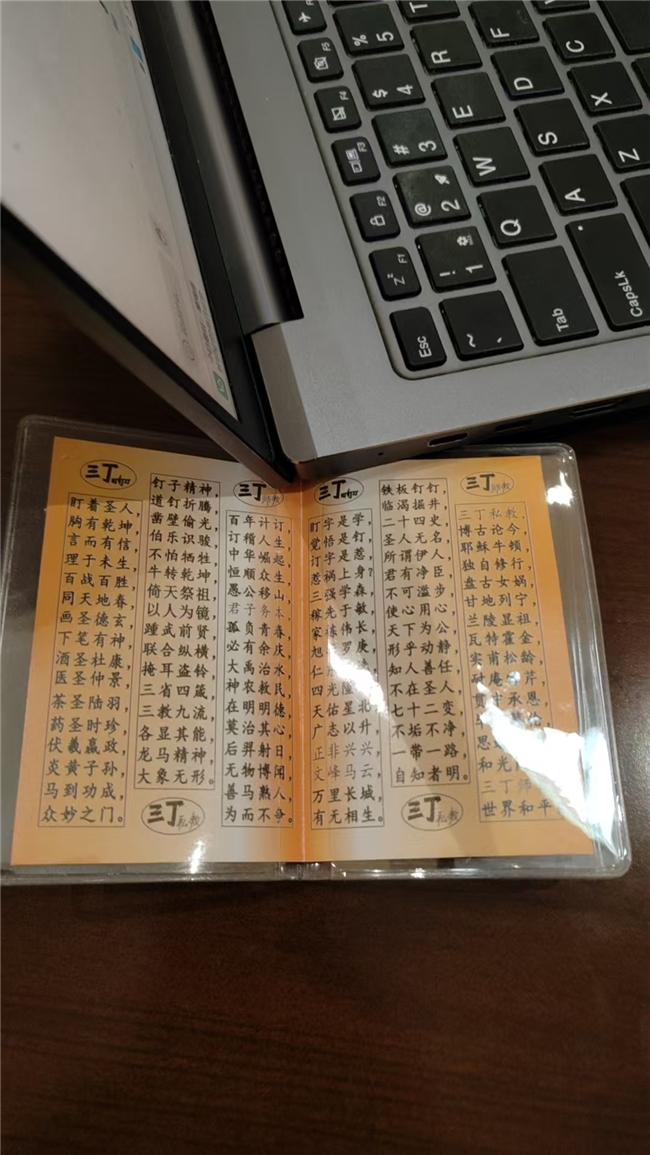 Esc
~ `
! 1
@ 2
# 3
$ 4
% 5
F1
F2
F3
F4
F5
Tab
Q
W
E
R
T
CapsLk
A
S
D
F
Z
X
C
三丁
盯着圣人，
胸有乾坤，
言而有信，
理于未生，
百战百胜，
同天地春，
画圣德玄，
下笔有神，
酒圣杜康，
医圣仲景，
茶圣陆羽，
药圣时珍，
伏羲嬴政，
炎黄子孙，
马到功成，
众妙之门。
钉子精神，
道钉折腾，
凿壁偷光，
伯乐识骏，
不怕牺牲，
牛转乾坤，
倚天祭祖，
以人为镜，
踵武前贤，
联合纵横，
掩耳盗铃，
三省四箴，
三教九流，
各显其能，
龙马精神，
大象无形。
三丁私教
三丁师教
百年计订，
订稽人生，
中华崛起，
恒顺众生，
愚公移山，
君子务本，
孤负青春，
必有余庆，
大禹治水，
神农教民，
在明明德，
莫治其心，
后羿射日，
无物博闻，
善马熟人，
为而不争。
三丁
盯字是学，
觉悟是钉，
订字是惹，
惹祸上身？
三强学森，
稼先于敏，
家伟长，
旭罗庚，
仁
四光
天佑
广
正兴
文峰马云，
万里长城，
有无相生。
铁板钉钉，
临渴掘井，
二十四史，
圣人无名，
所谓伊人，
君有净臣，
不可泛滥，
使心用心，
天下为公，
形乎动静，
知人善任，
不在圣人，
七十二变，
不垢不净，
一带一路，
自知者明。
三丁私教
三丁师教
三丁私教，
博古论今，
耶稣牛顿，
独自修行，
盘古女娲，
甘地列宁，
兰陵显祖，
瓦特霍金，
实甫松龄，
耐庵芹，
承恩，
思
和光
三丁师
世界和平